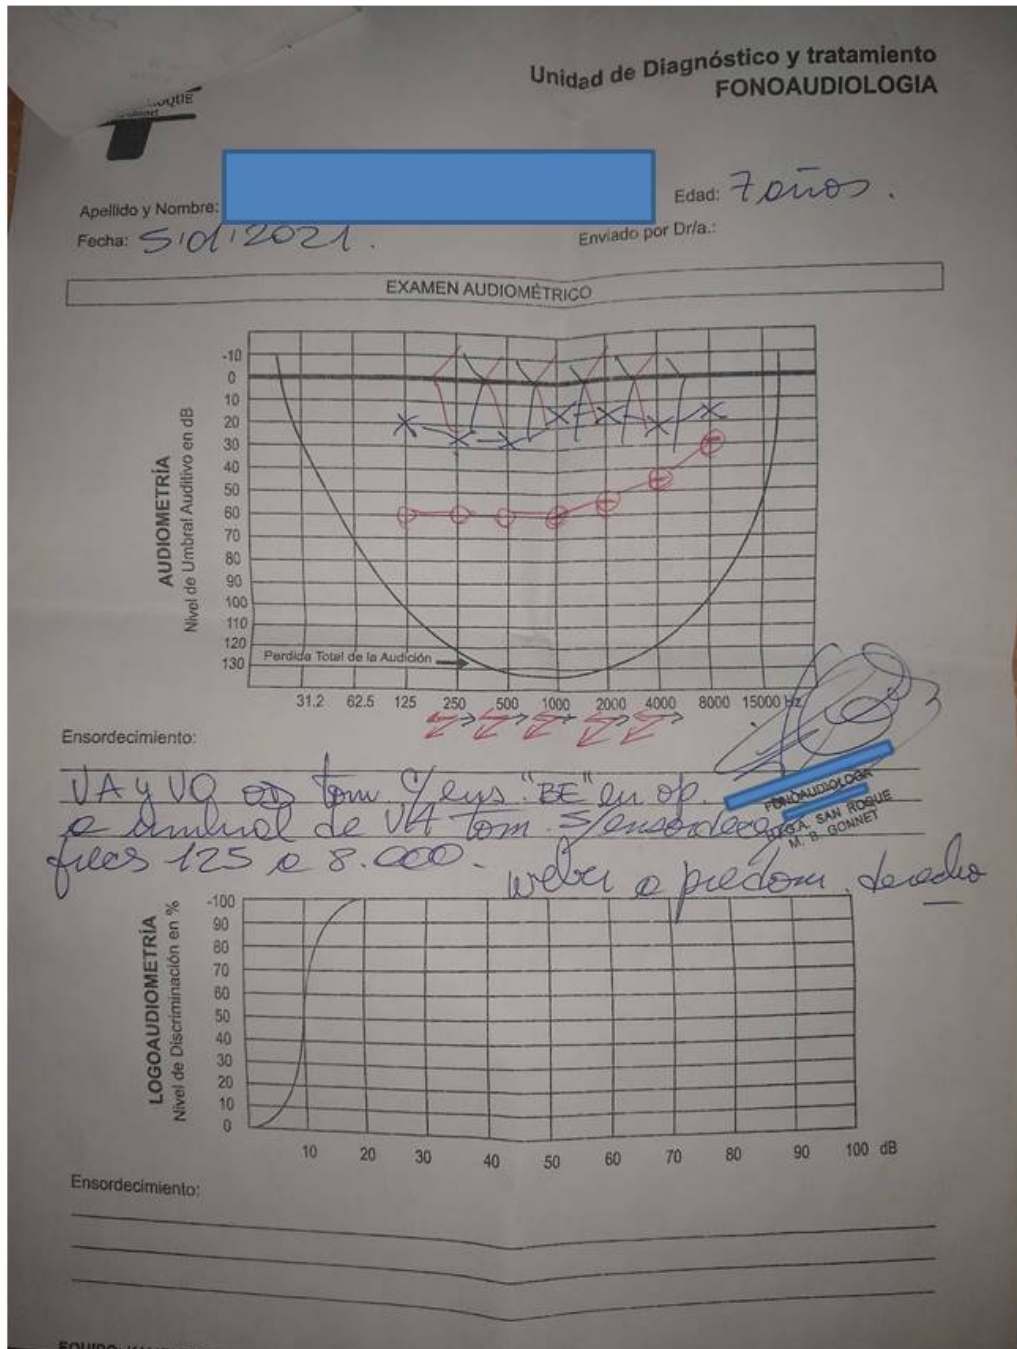 Unidad de Diagnóstico y tratamiento
FONOAUDIOLOGIA
Apellido y Nombre:
Edad: 7 años.
Fecha: 5/01/2021.
Enviado por Dr/a.:
EXAMEN AUDIOMÉTRICO
AUDIOMETRÍA
Nivel de Umbral Auditivo en dB
-10
0
10
20
30
40
50
60
70
80
90
100
110
120
130
Perdida Total de la Audición
31.2 62.5 125 250 500 1000 2000 4000 8000 15000 Hz
Ensordecimiento:
VA y VO OD tom. c/ens. "BE" en op.
a umbral de VA tom. s/ensordecer
frecs 125 a 8.000.-
weber a predom. derecho
FONOAUDIOLOGA
SAN ROQUE
M. B. GONNET
LOGOAUDIOMETRÍA
Nivel de Discriminación en %
-100
90
80
70
60
50
40
30
20
10
0
10 20 30 40 50 60 70 80 90 100 dB
Ensordecimiento: